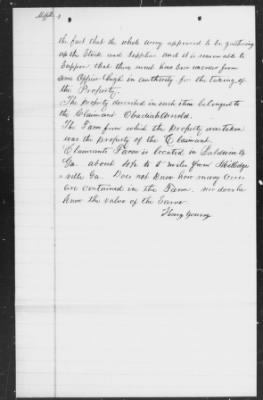 the fact that the whole army appeared to be gathering
up the Stock and Supplies and it is reasonable to
Suppose that there must have been orders from
some officer high in authority for the taking of
the Property.
The property described in each item belonged to
the Claimant Obadiah Arnold.
The Farm from which the property was taken
was the property of the Claimant.
Claimants Farm is located in Baldwin Co
Ga. about 4½ to 5 miles from Milledge
ville Ga. Does not know how many acres
are contained in the Farm. nor does he
know the value of the Same.
Henry Young